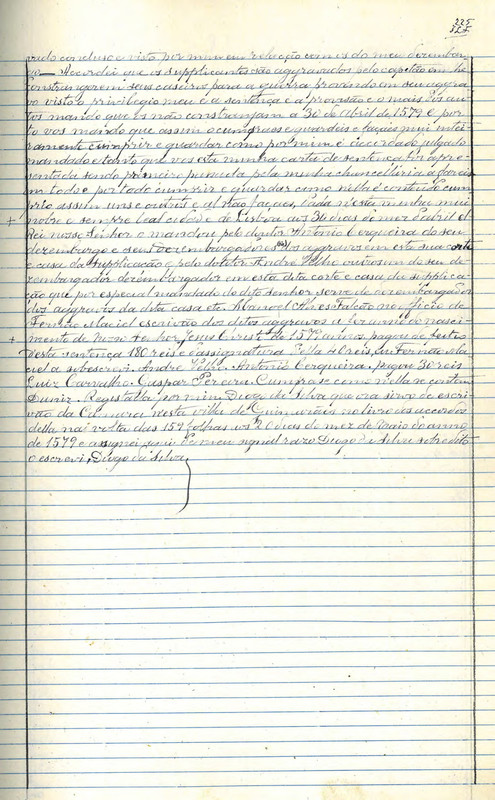 225
327
concluso e visto por mim em relacção com os do meu desembar
go — Acordei que os supplicantes são aggravados pelo capitão em lhe
constrangerem seus caseiros para a guerra provendo em seu aggra
vo visto o privilegio meu e a sentença e a provisão e o mais dos au
tos mando que os não constranjam a 30 de Abril de 1579 e por
to vos mando que assim o cumpraes e guardeis e façaes mui intei
ramente cumprir e guardar como por mim é acordado julgado
mandado e tanto que vos esta minha carta de sentença for apre
sentada sendo primeiro passada pela minha chancellaria a façais
em todo e por todo cumprir e guardar como nella é contendo cum
prio assim uns e outros e al não façaes, Dada n'esta minha mui
nobre e sempre leal cidade de Lisboa aos 30 dias do mez d'abril el
Rei nosso Senhor o mandou pelo doutor Antonio Cerqueira do seu
dezembargo e seus dezembargadores dos aggravos em esta sua corte
e casa da supplicação e pelo doutor André outrosim do seu de
zembargo dezembargador em esta dita corte e casa da supplica
ção que por especial mandado do dito senhor serve de dezembargador
dos aggravos da dita casa etc. Manoel Alves Falcão no officio de
Fernão Maciel escrivão dos ditos aggravos a fez anno do nasci
mento de Nosso Senhor Jesus Christo de 1579 annos, pagou de feitio
desta sentença 180 reis e d'assignatura della 40 reis, eu Fernão Ma
ciel a subscrevi. André Antonio Cerqueira. pagou 30 reis
Luiz Carvalho. Gaspar Pereira. Cumpra-se como nella se contem
Diniz. Registada por mim Diogo da Silva que ora sirvo de escri
vão da Camara nesta villa de Guimarães no livro dos accordos
della na volta das 159 folhas aos 20 dias do mez de Maio do anno
de 1579 e assignei aqui de meu signal raso Diogo da Silva sobredito
o escrevi, Diogo da Silva